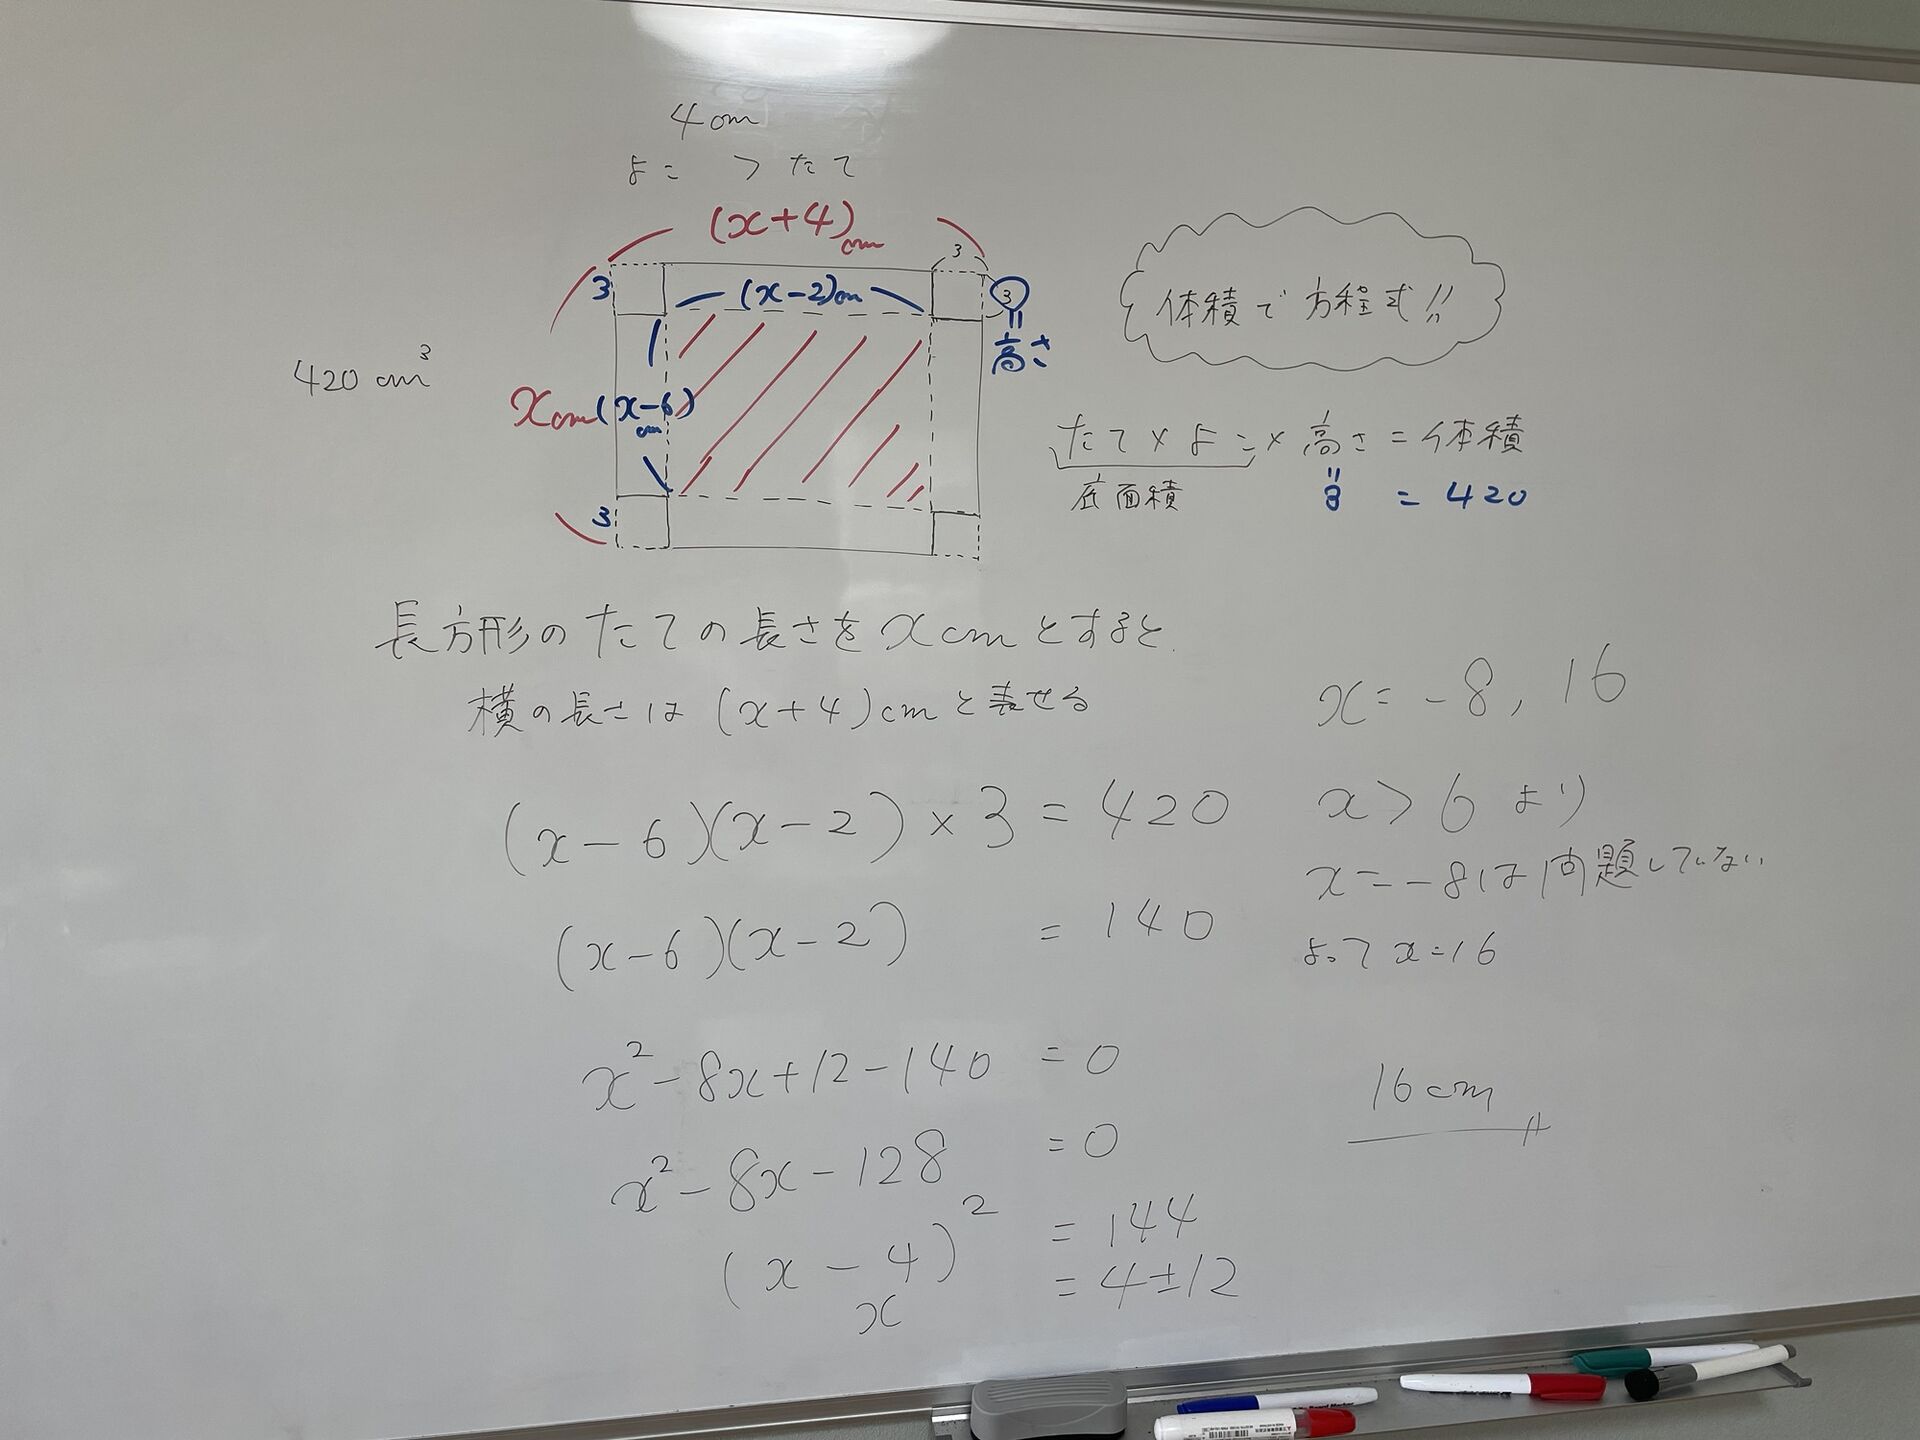 4cm
よこ > たて
(x+4)cm
3
3 (x-2)cm 3
=
高さ
420cm³
xcm (x-6)cm
3
体積で方程式!!
たて×よこ×高さ=体積
底面積 = 3 = 420
長方形のたての長さをxcmとすると
横の長さは(x+4)cmと表せる
(x-6)(x-2)×3=420
(x-6)(x-2) =140
x²-8x+12-140 =0
x²-8x-128 =0
(x-4)² =144
x =4±12
x=-8,16
x>6より
x=-8は問題していない
よってx=16
16cm